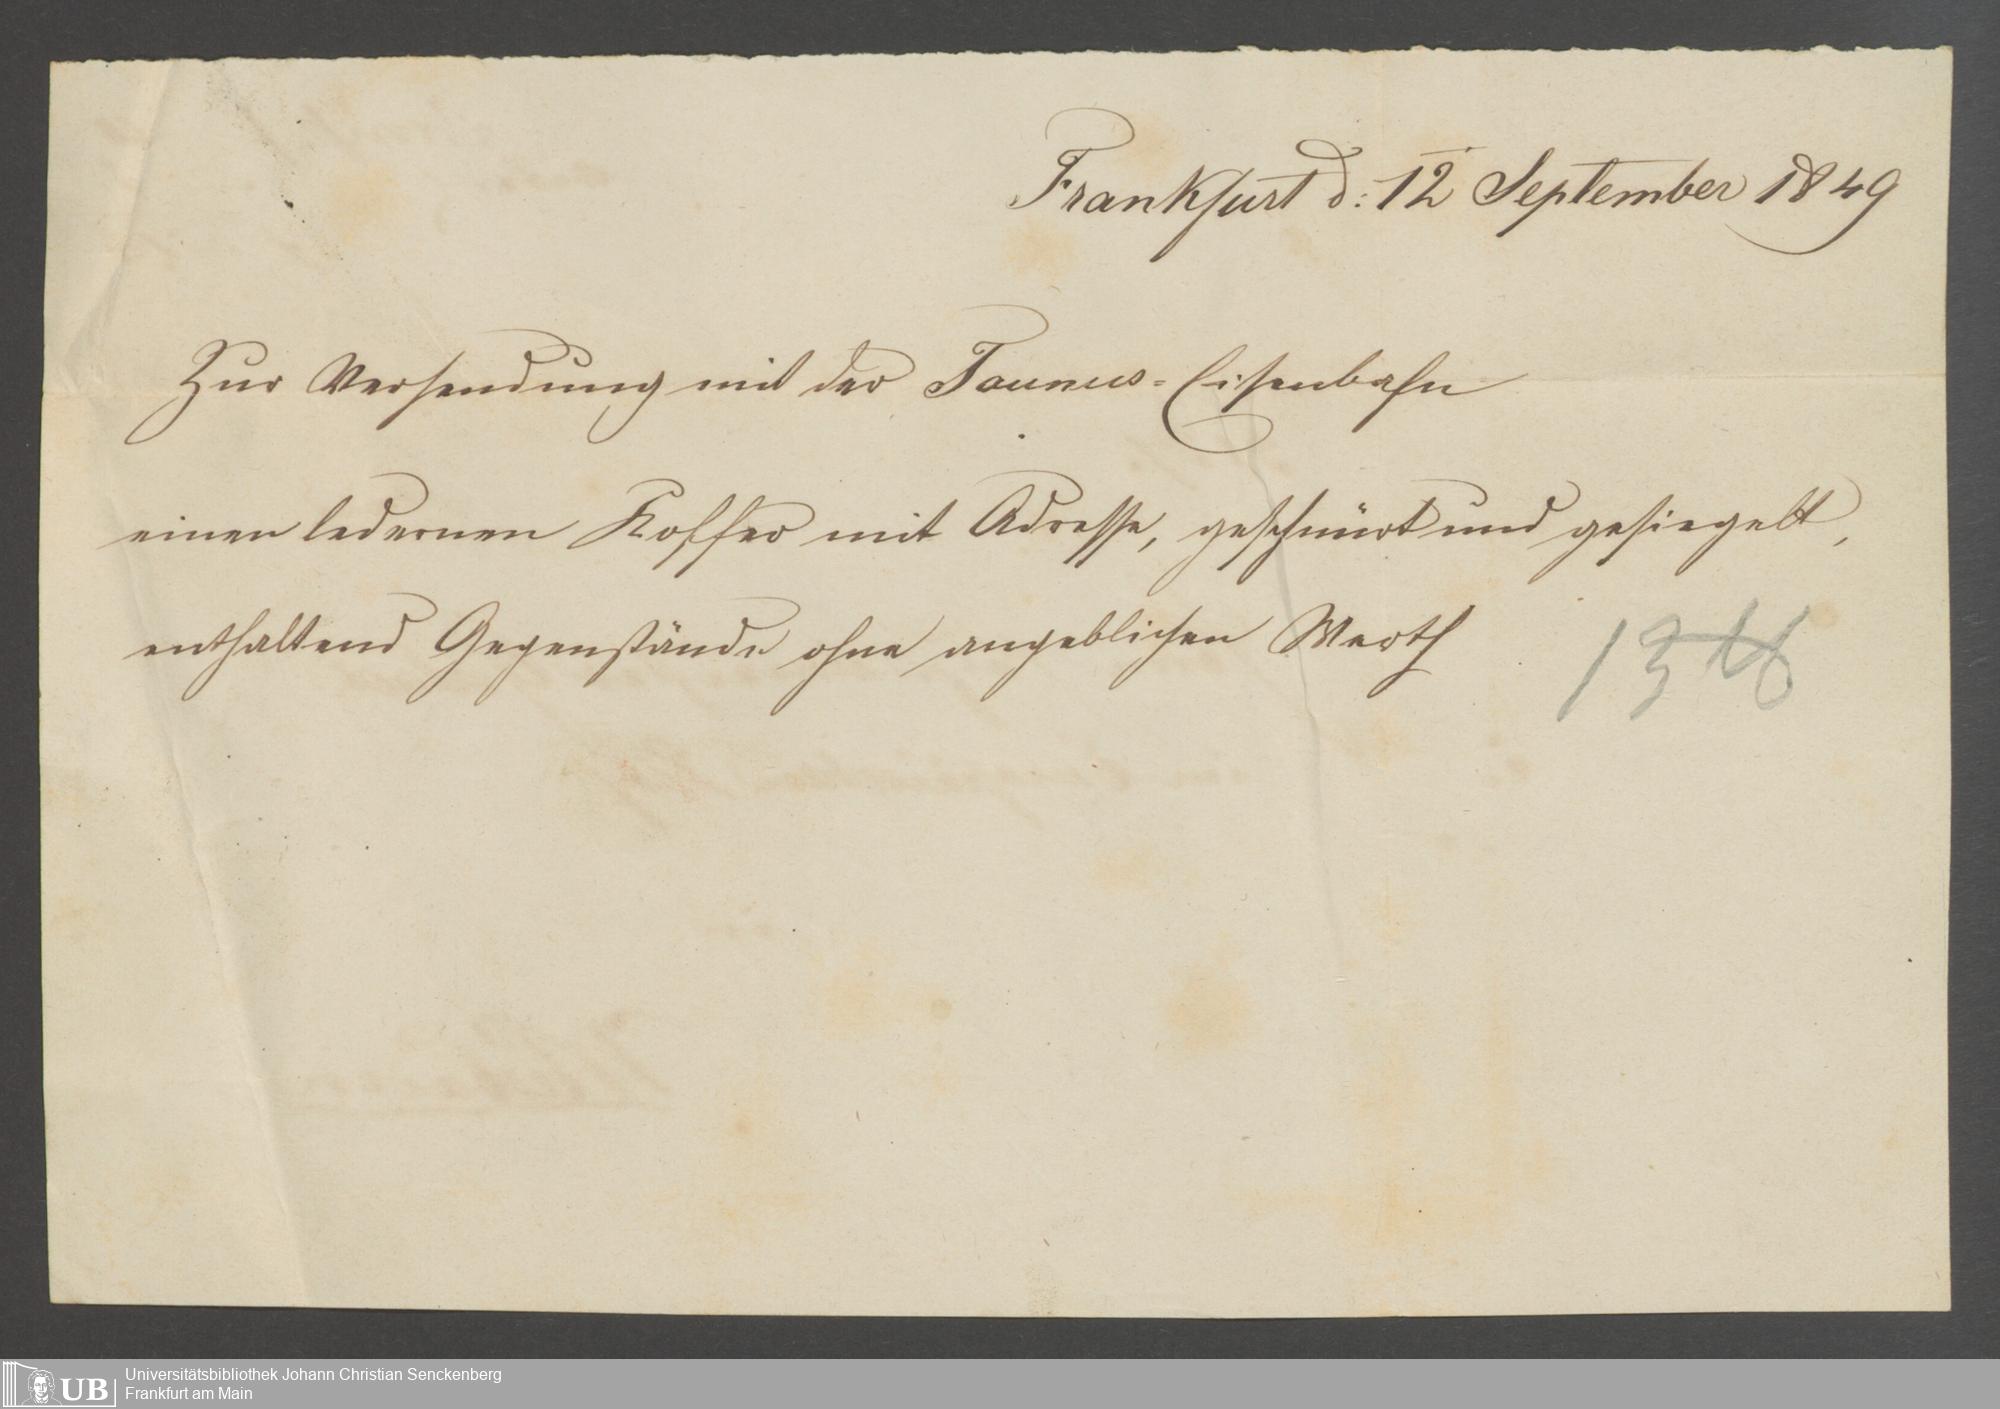 Frankfurt d: 12 September 1849
Zur Versendung mit der Taunus-Eisenbahn
einen ledernen Koffer mit Adresse, geschnürt und gesiegelt,
enthaltend Gegenstände ohne angeblichen Werth
13 ℔
UB
Universitätsbibliothek Johann Christian Senckenberg
Frankfurt am Main